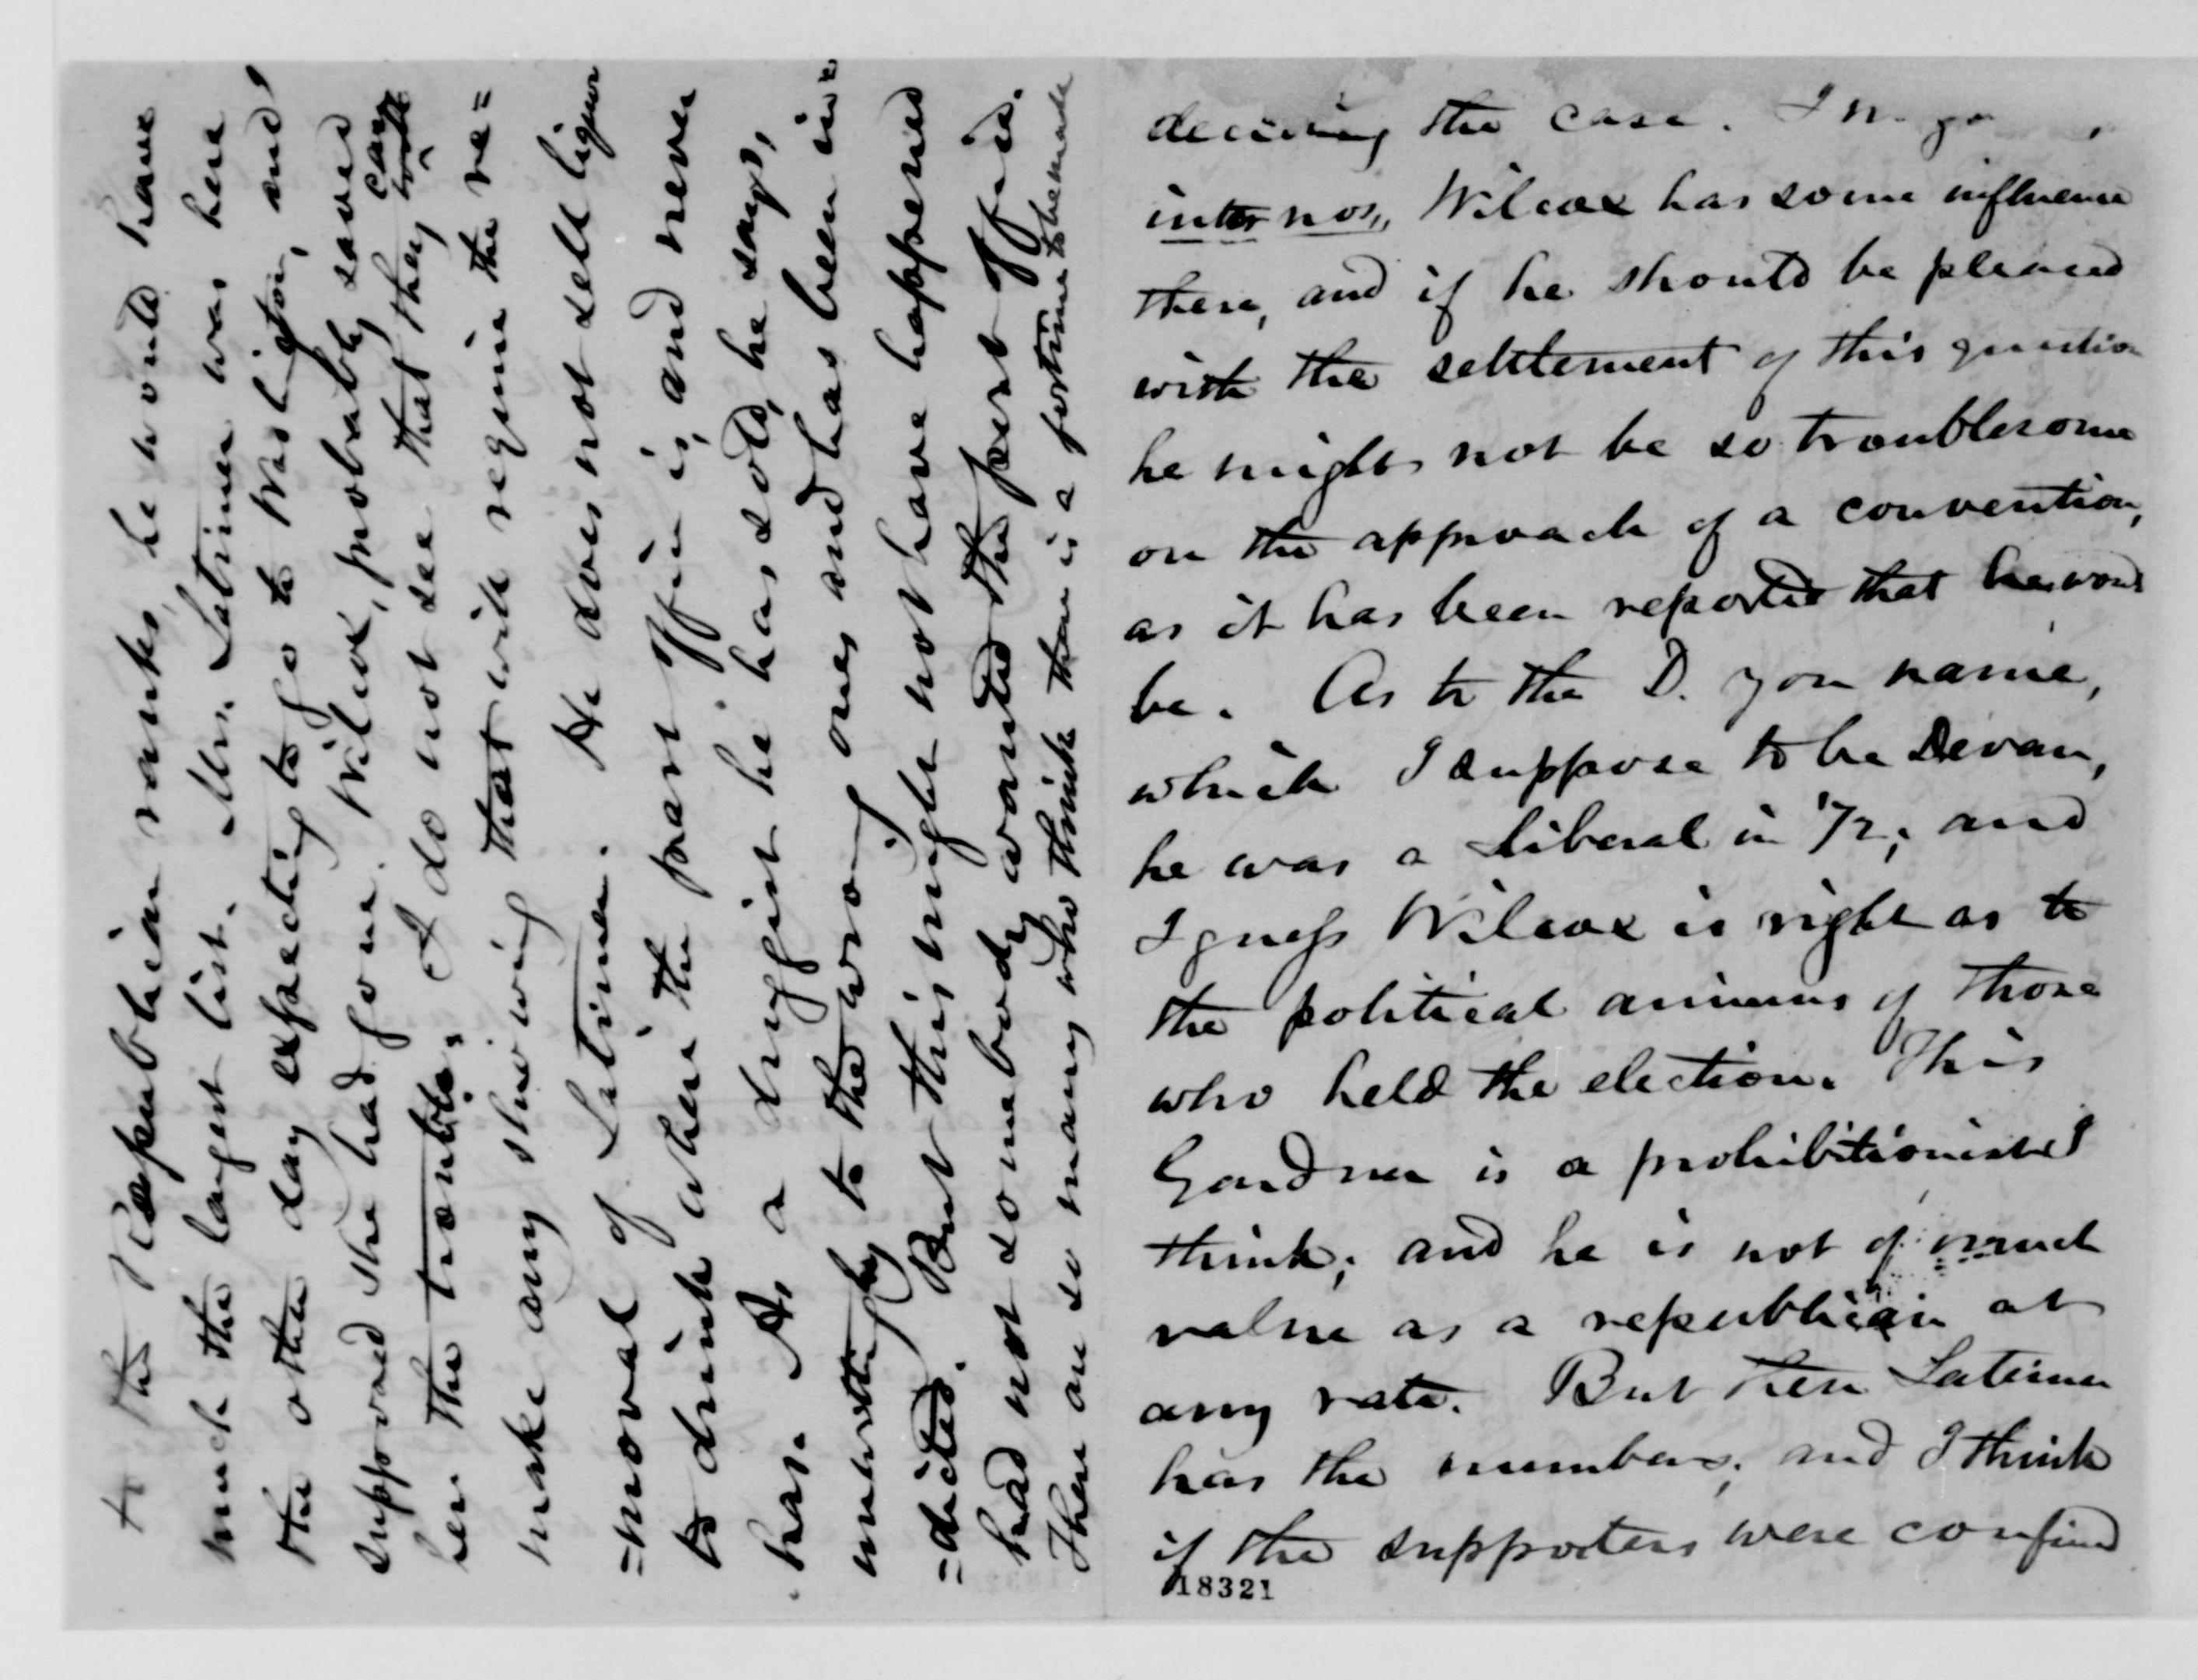 deciding the case.
inter nos, Wilcox has some influence
there, and if he should be pleased
with the settlement of this question
he might not be so troublesome
on the approach of a convention,
as it has been reported that he would
be. As to the D. you name,
which I suppose to be Devan,
he was a Liberal in '72; and
I guess Wilcox is right as to
the political animus of those
who held the election. This
Gardner is a prohibitionist I
think; and he is not of much
value as a republican at
any rate. But then Latimer
has the numbers; and I think
if the supporters were confined
18321
to the Republican ranks, he would have
much the largest list. Mrs. Latimer was here
the other day expecting to go to Washington, and I
supposed she had gone. Wilcox, probably, saved
her the trouble. I do not see that they can
make any showing that will require the re=
=moval of Latimer. He does not sell liquor
to drink where the post office is, and never
has. As a druggist he has sold, he says,
unwittingly to the wrong ones and has been in=
=dicted. But this might not have happened
had not somebody wanted the post office.
There are so many who think there is a fortune to be made